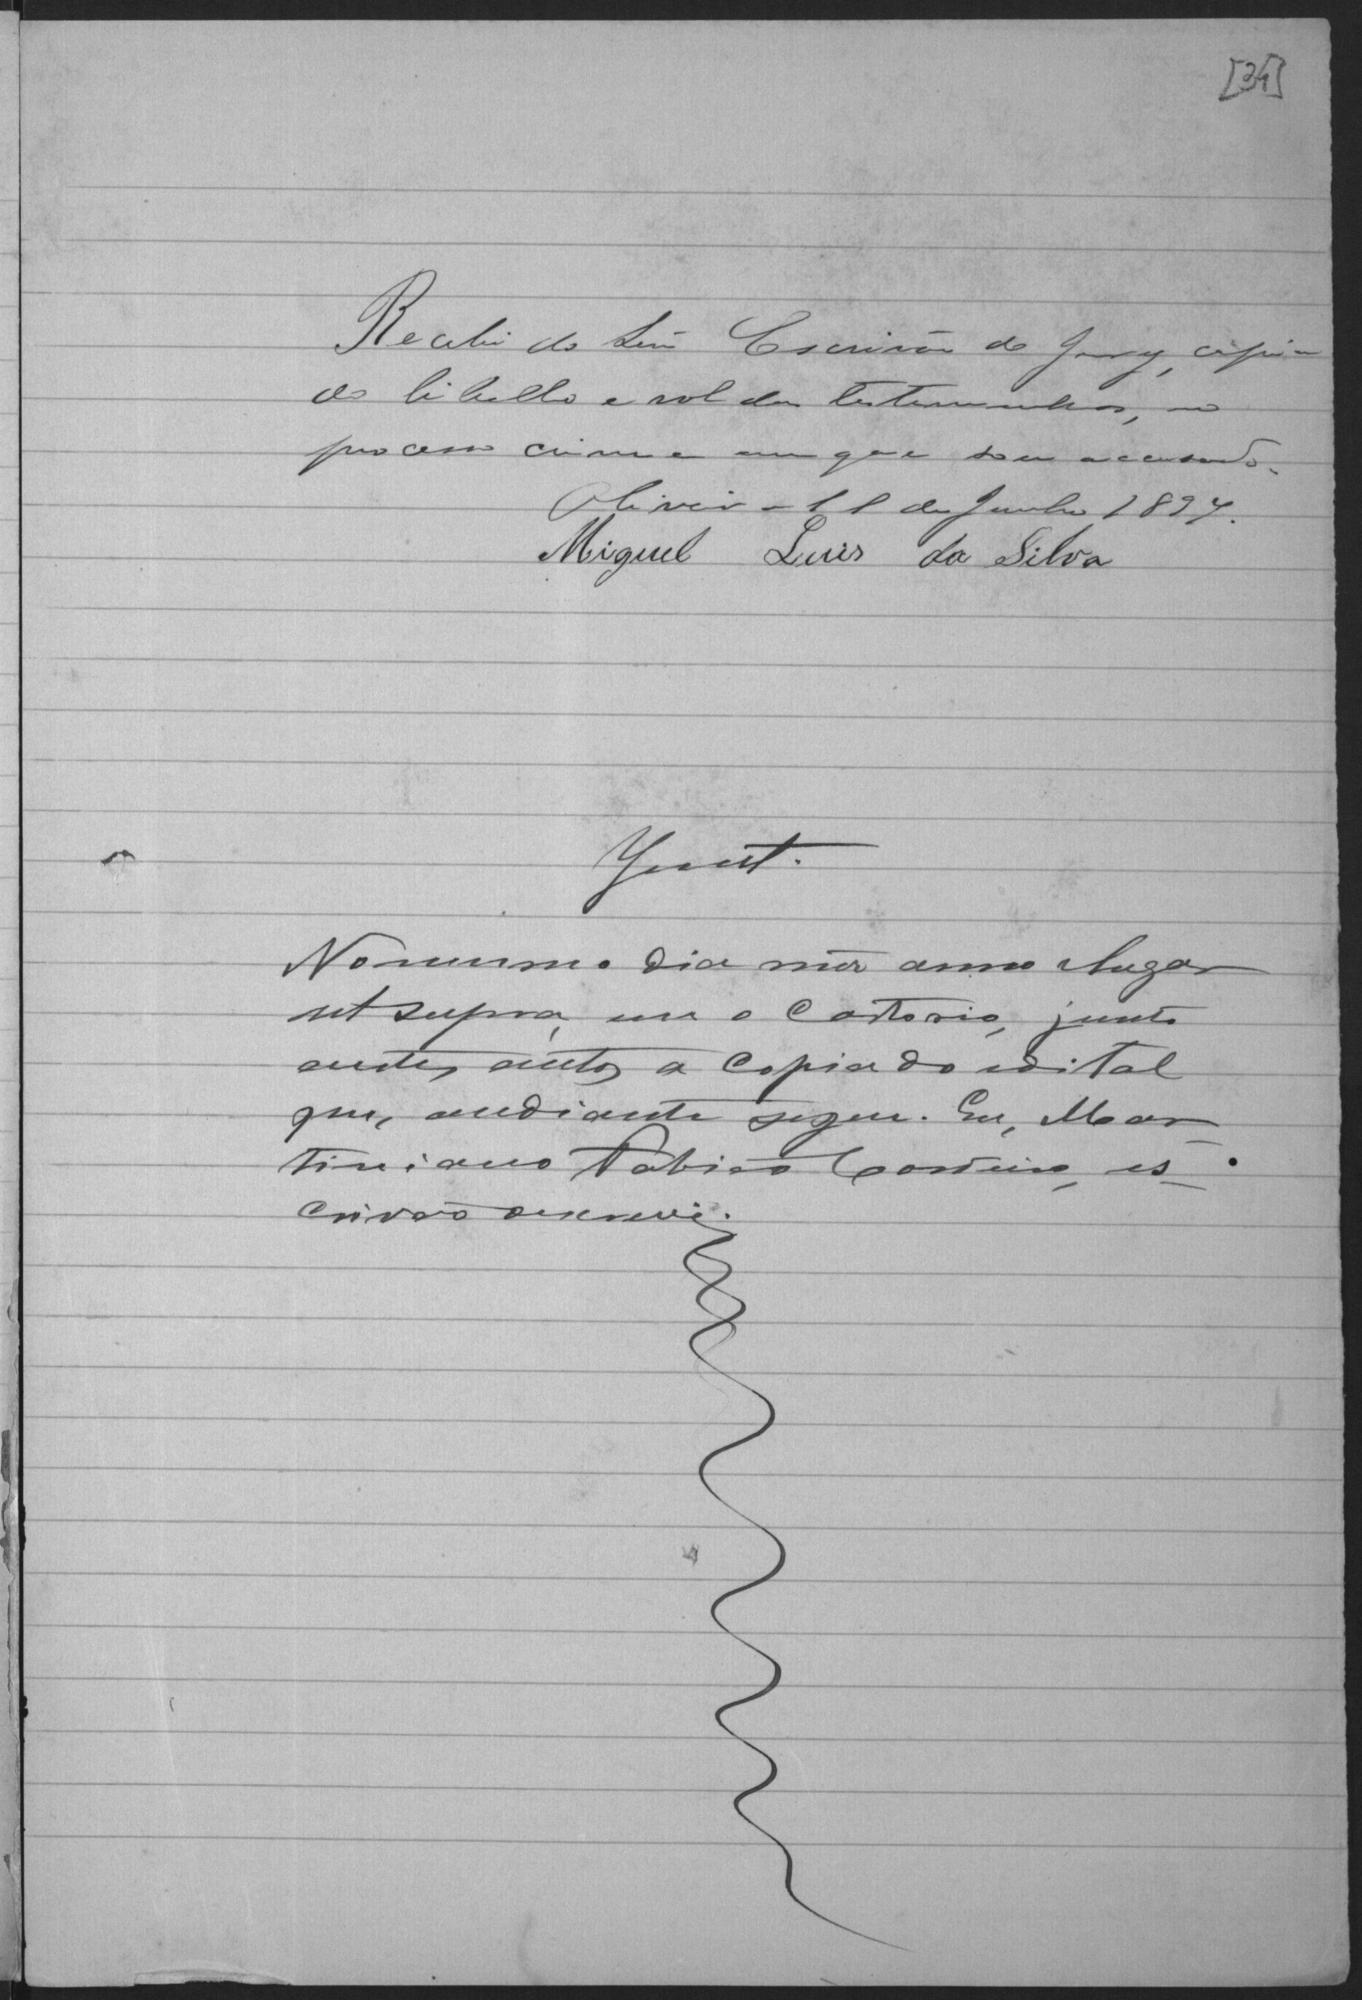 [34]
Recebi do Snr Escrivão do Jury, copia
do libello e rol das testemunhas, no
processo crime em que sou accusado.
Oliveira 11 de Junho 1897.
Miguel Luis da Silva
Junt.
No mesmo dia mez anno e lugar
ut supra, em o Cartorio, junto
a estes autos a copia do edital
que, a ediante segue. Eu, Mar-
tiniano Cordeiro, es-
crivão o escrevi.